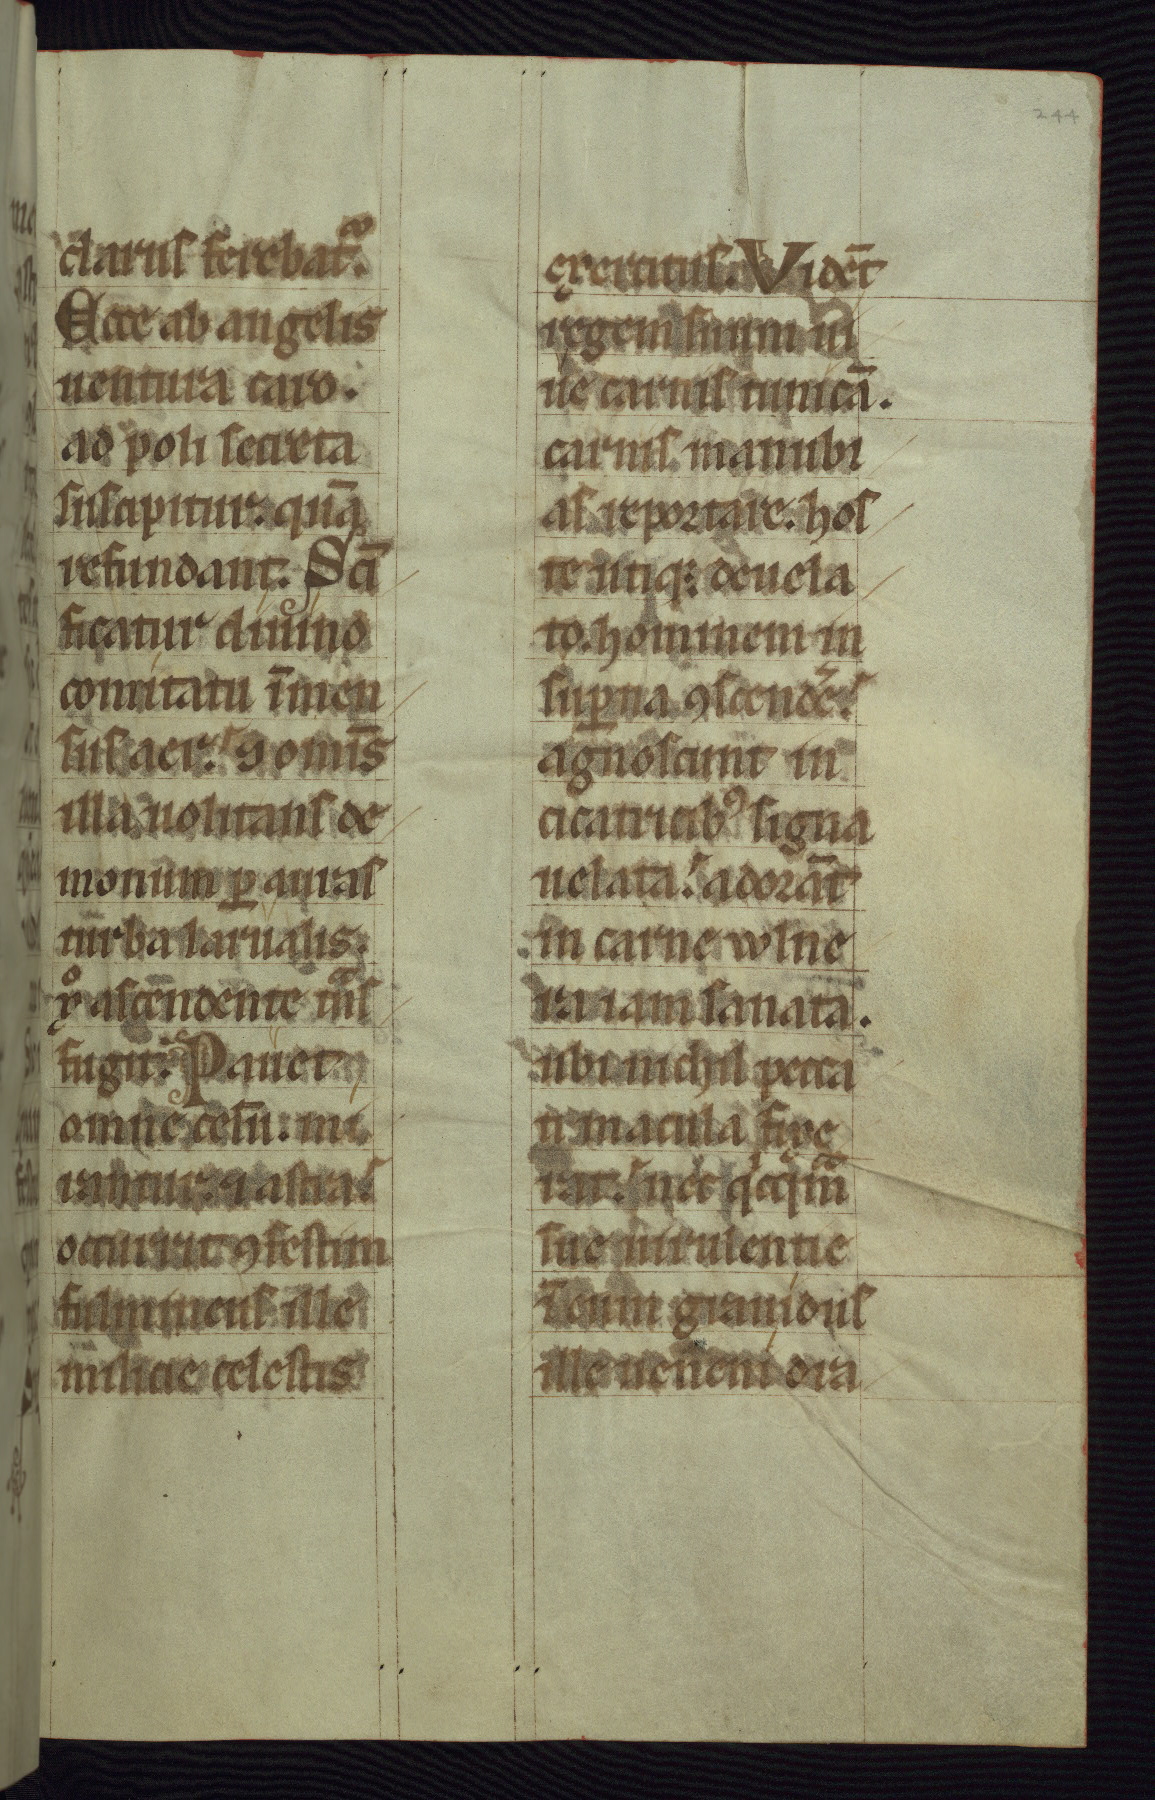 244
clarus ferebat᷑.
Ecce ab angelis
uentura caro.
ad poli secreta
suscipitur. quā
refundant. Scī
ficatur diuino
comitatu īmen
sus aer. ꝯ omīs
illa uolitans de
monum ꝑ auras
turba larualis.
xͦ ascendente
fugit. Pauet
omne celū. mi
rantur ⁊ astra.
occurrit ꝯfestim
fulmineus ille
milicie celestis
exercitus. Vidēt
regem suum ui
ue carnis tunicā.
carnis manubi
as reportare. hos
te utiqꝫ deuela
to. hominem in
suꝑna ꝯscendē.
agnoscunt in
cicatricibꝰ signa
uelata. adorāt
in carne wlne
ra iam sanata.
ubi nichil pecca
ti macula fixe
rat. nec
sue uirulentie
ī eum grauidus
ille ueneni ora